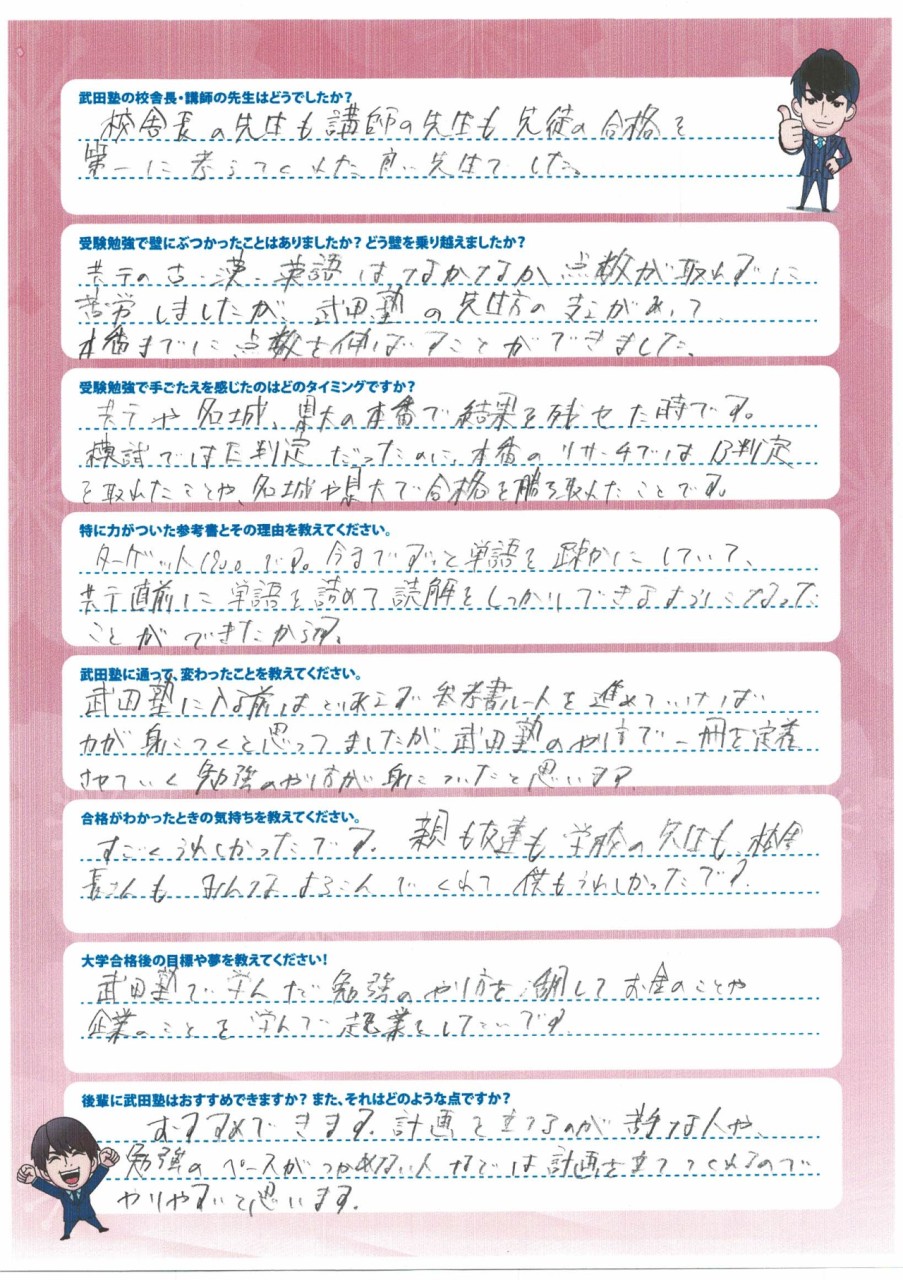 武田塾の校舎長・講師の先生はどうでしたか?
校舎長の先生も講師の先生も生徒の合格を
第一に考えてくれた良い先生でした。
受験勉強で壁にぶつかったことはありましたか? どう壁を乗り越えましたか?
共テの古・漢・英語はなかなか点数が取れずに
苦労しましたが、武田塾の先生方の支えがあって
本番までに点数を伸ばすことができました。
受験勉強で手ごたえを感じたのはどのタイミングですか?
共テや名城、県大の本番で結果を残せた時です。
模試ではE判定だったのに、本番のリサーチではB判定
を取れたことや、名城や県大で合格を勝ち取れたことです。
特に力がついた参考書とその理由を教えてください。
ターゲット1900です。今までずっと単語を疎かにしていて、
共テ直前に単語を詰めて読解をしっかりできるようになった
ことができたからです。
武田塾に通って、変わったことを教えてください。
武田塾に入る前はとりあえず参考書ルートを進めていけば
力が身につくと思ってましたが、武田塾のやり方で一冊を定着
させていく勉強のやり方が身についたと思います。
合格がわかったときの気持ちを教えてください。
すごくうれしかったです。親も友達も学校の先生も、校舎
長さんもみんなよろこんでくれて僕もうれしかったです。
大学合格後の目標や夢を教えてください!
武田塾で学んだ勉強のやり方を してお金のことや
企業のことを学んで起業をしたいです。
後輩に武田塾はおすすめできますか? また、それはどのような点ですか?
おすすめできます。計画を立てるのが苦手な人や、
勉強のペースがつかめない人などは計画を立ててくれるので
やりやすいと思います。